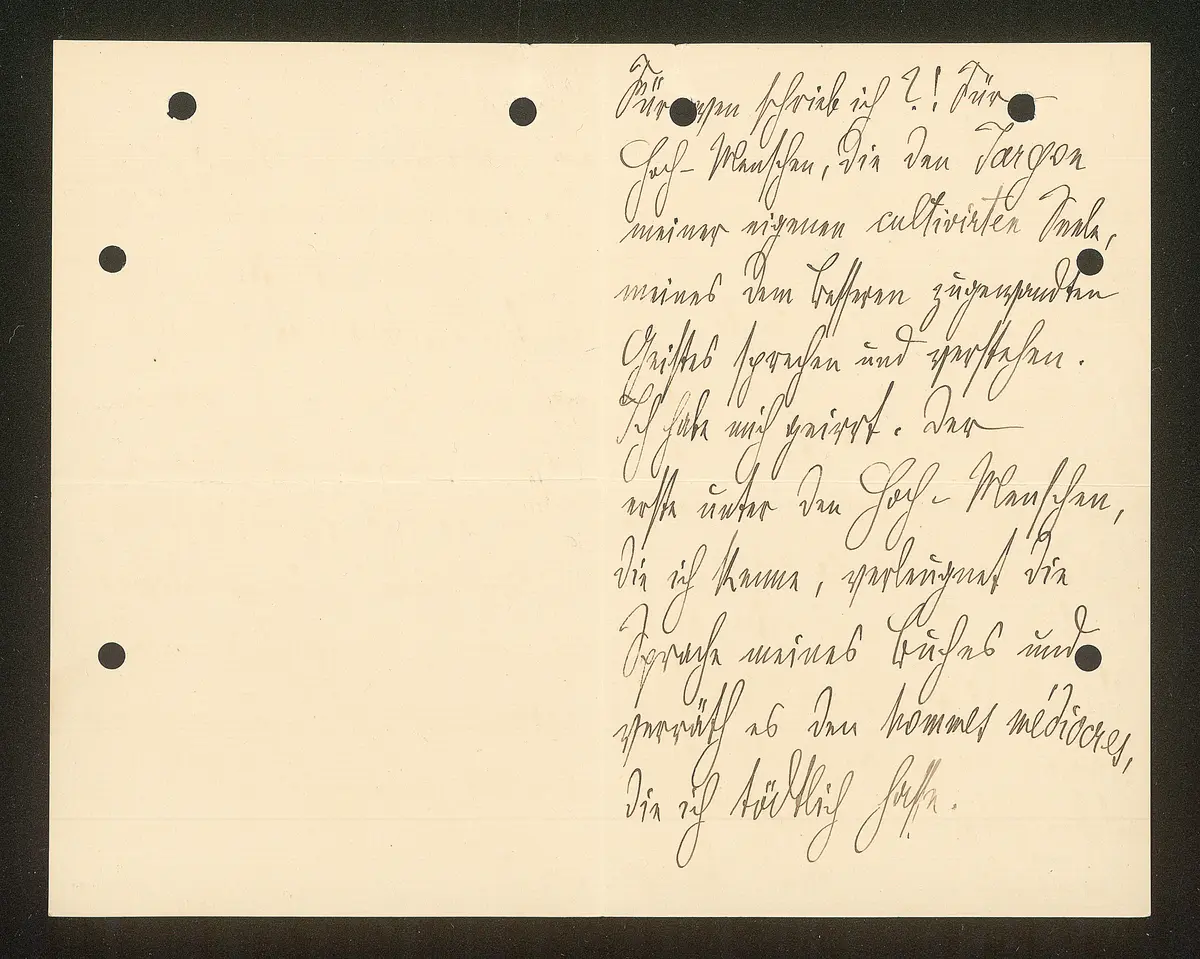 Für wen schrieb ich ?! Für
Hoch-Menschen, die den Jargon
meiner eigenen cultivirten Seele,
meines dem Besseren zugewandten
Geistes sprechen und verstehen.
Ich habe mich geirrt. Der
erste unter den Hoch-Menschen,
die ich kenne, verleugnet die
Sprache meines Buches und
verräth es den hommes médiocres,
die ich tödtlich hasse.